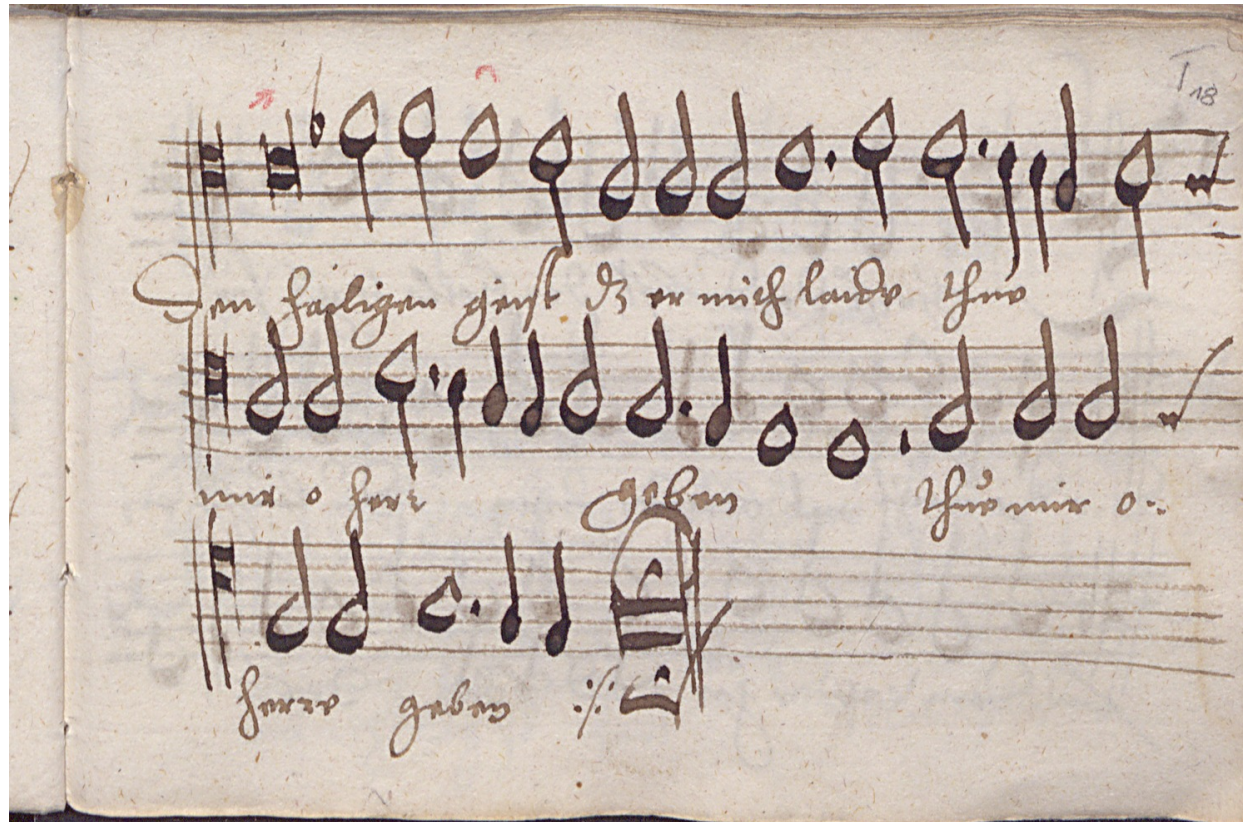 T 18
Den hailigen geist dz er mich laide thue
mir o herr geben thue mir o
herre geben